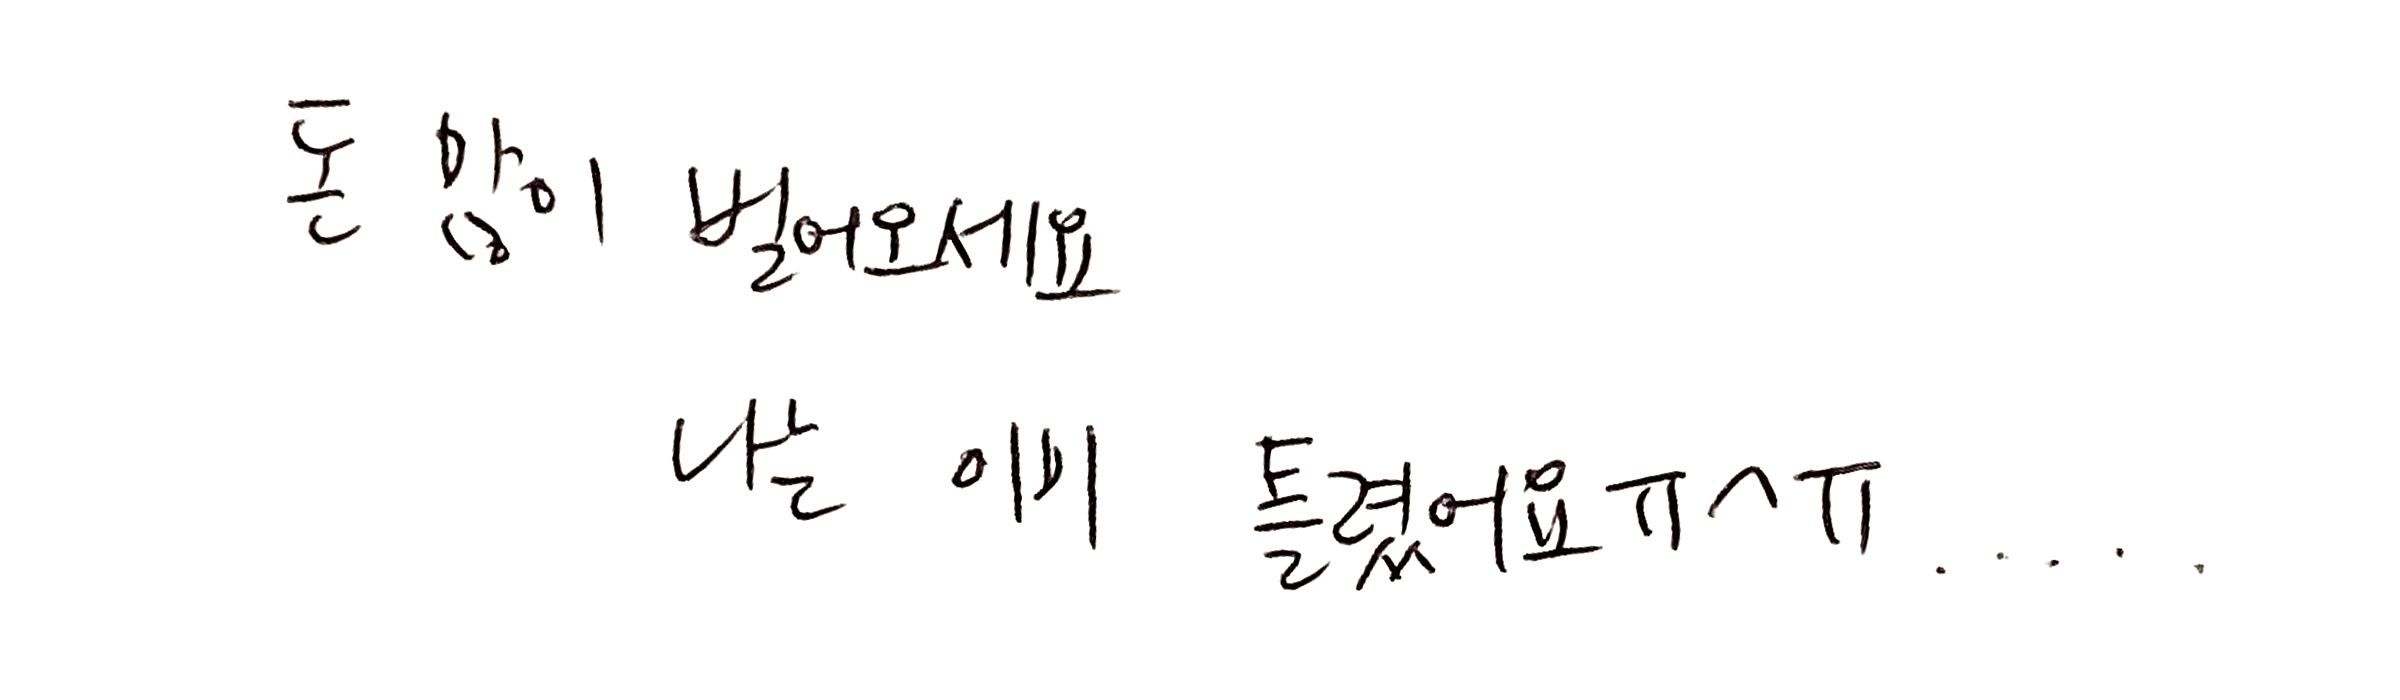 돈 많이 벌어오세요
나는 이미 틀렸어요ㅠ^ㅠ.....